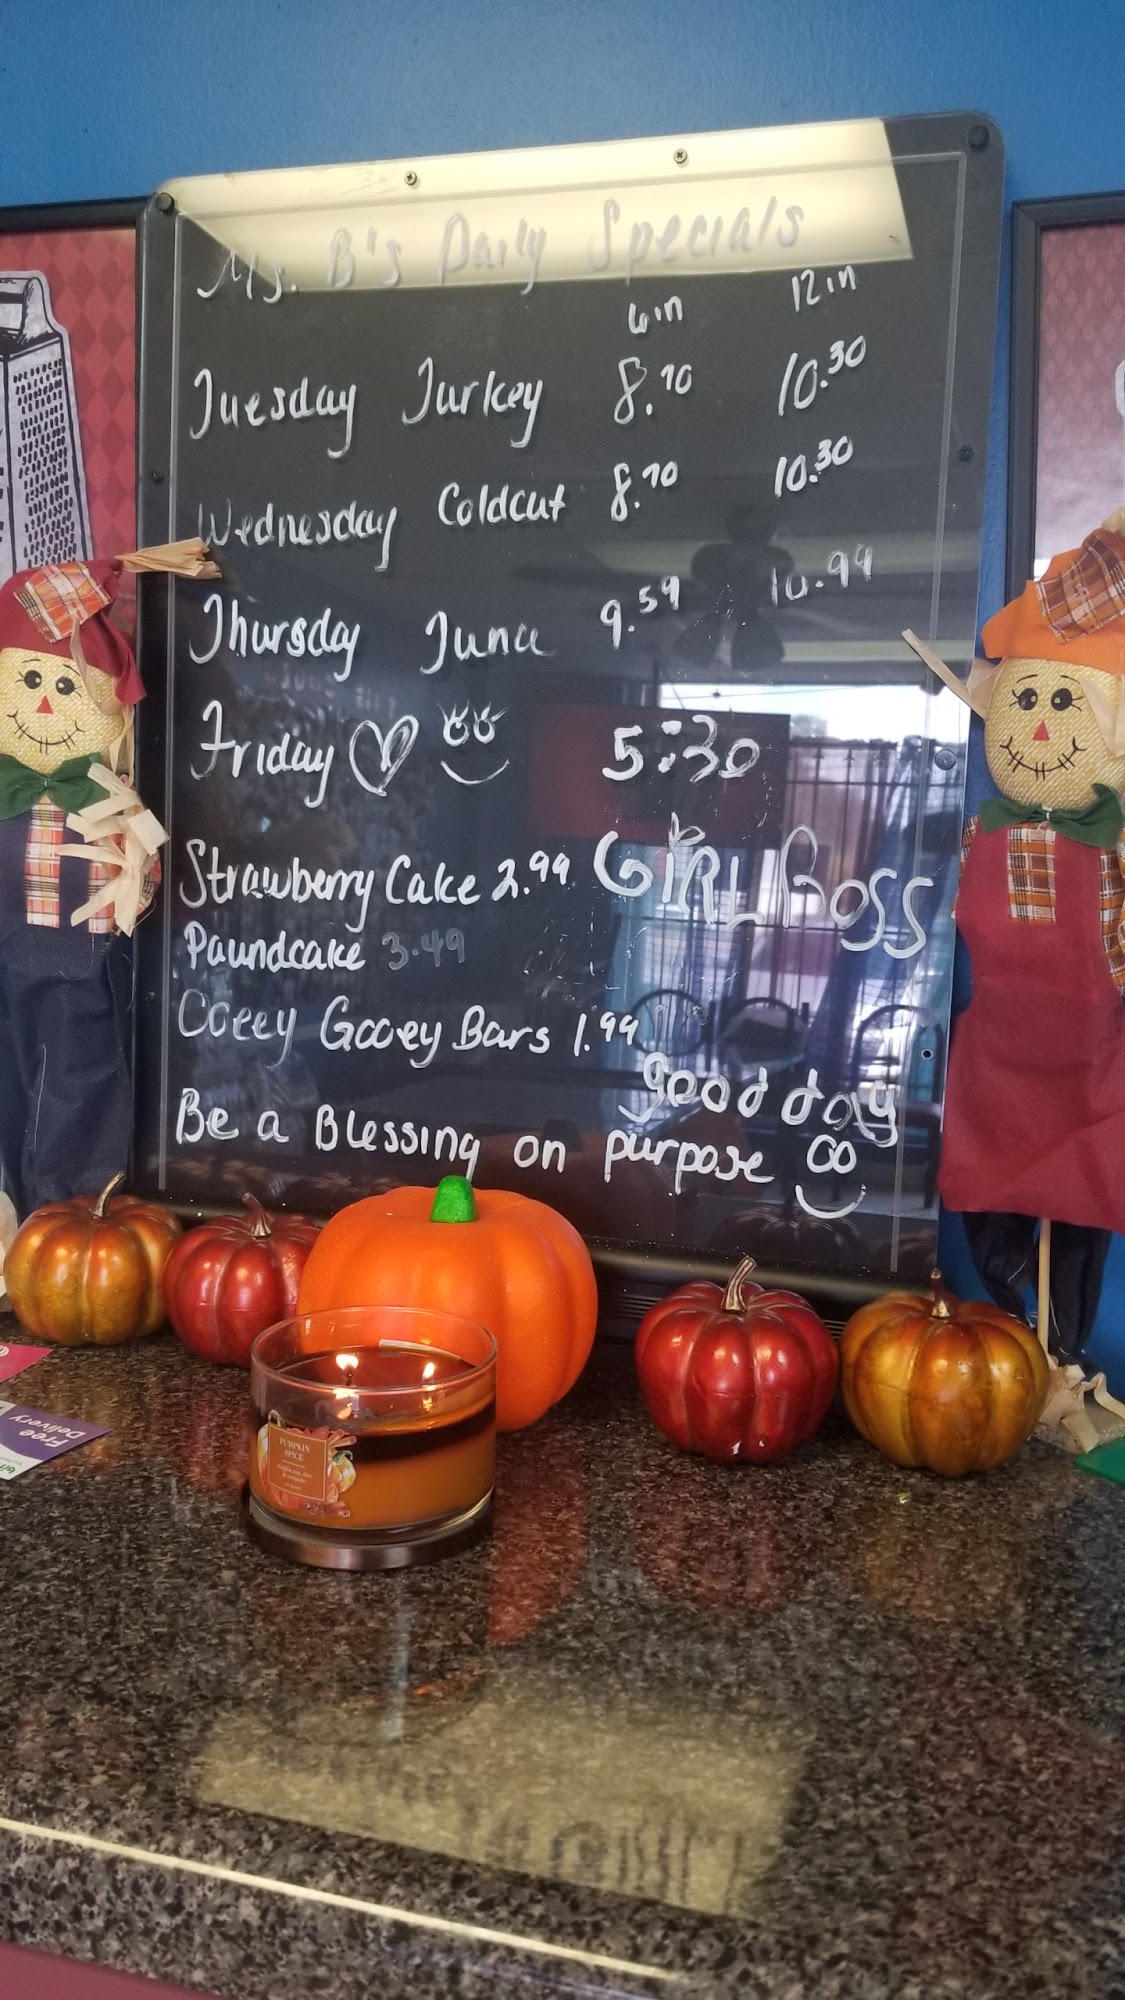 Ms. B's Daily Specials
6in 12in
Tuesday Turkey 8.70 10.30
Wednesday Coldcut 8.70 10.30
Thursday Tuna 9.59 10.99
Friday 5:30
Strawberry Cake 2.99 GIRL BOSS
Paundcake 3.49
Ooeey Gooey Bars 1.99
good day
Be a Blessing on purpose
PUMPKIN
SPICE
Free
Delivery